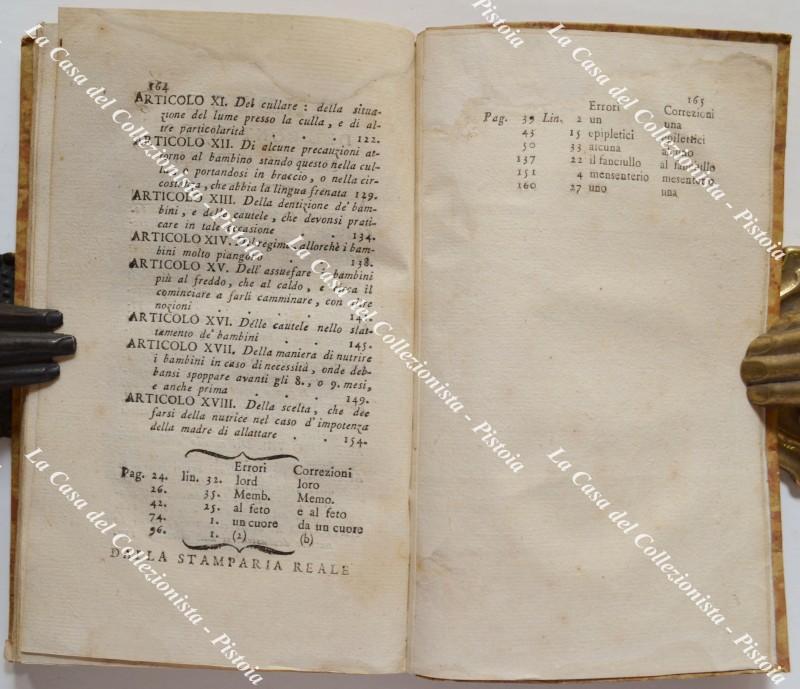 164
ARTICOLO XI. Del cullare: della situa-
zione del lume presso la culla, e di al-
tre particolarità . . . . 122.
ARTICOLO XII. Di alcune precauzioni at-
torno al bambino stando questo nella cul-
e portandosi in braccio, o nella cir-
che abbia la lingua frenata 129.
ARTICOLO XIII. Della dentizione de' bam-
bini, e delle cautele, che devonsi prati-
care in tale occasione . . 134.
ARTICOLO XIV. regime allorchè i bam-
bini molto piangono . . 138.
ARTICOLO XV. Dell' assuefare i bambini
più al freddo, che al caldo, e circa il
cominciare a farli camminare, con altre
nozioni . . . .
ARTICOLO XVI. Delle cautele nello slat-
tamento de' bambini . . 145.
ARTICOLO XVII. Della maniera di nutrire
i bambini in caso di necessità, onde deb-
bansi spoppare avanti gli 8., o 9. mesi,
e anche prima . . . 149.
ARTICOLO XVIII. Della scelta, che dee
farsi della nutrice nel caso d'impotenza
della madre di allattare . . 154.
Errori Correzioni
Pag. 24. lin. 32. lord loro
26. 35. Memb. Memo.
42. 25. al feto e al feto
74. 1. un cuore da un cuore
96. 1. (2) (b)
DALLA STAMPARIA REALE
165
Errori Correzioni
Pag. 39 Lin. 2 un una
45 15 epipletici epilettici
50 33 alcuna alcuno
137 22 il fanciullo al fanciullo
151 4 mensenterio mesenterio
160 27 uno una
La Casa del Collezionista - Pistoia
La Casa del Collezionista - Pistoia
La Casa del Collezionista - Pistoia
La Casa del Collezionista - Pistoia
La Casa del Collezionista - Pistoia
Pistoia